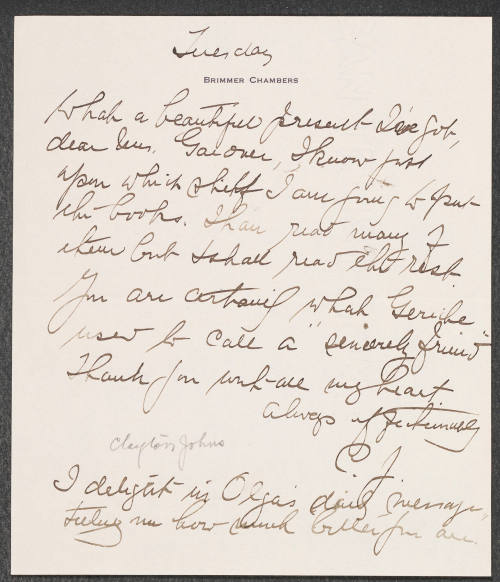 Tuesday
BRIMMER CHAMBERS
What a beautiful present I've got,
dear Mrs. Gardner, I know just
upon which shelf I am going to put
the books. I have read many of
them but I shall read the rest.
You are certainly what Gericke
used to call a "sincerely friend"
Thank you with all my heart
always affectionately
C. J.
Clayton Johns
I delight in Olga's daily message,
telling me how much better you are.